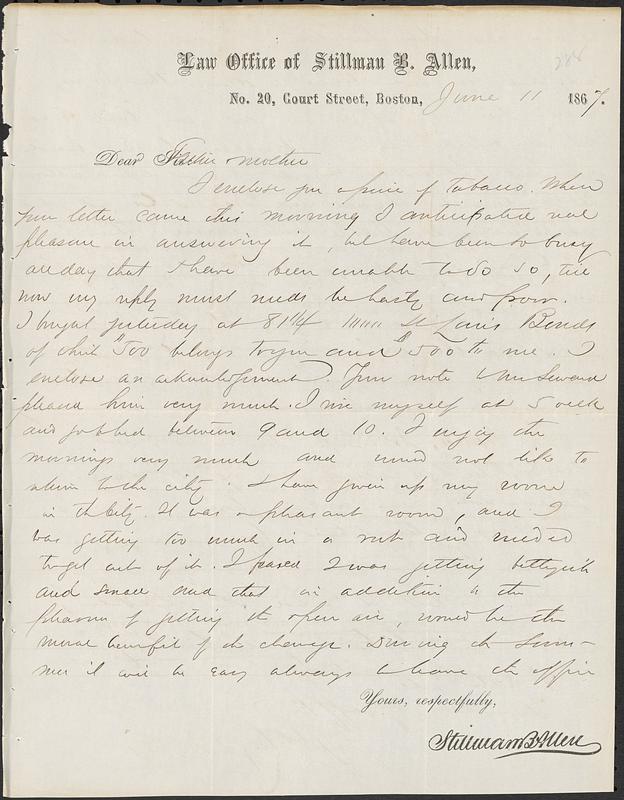 288
Law Office of Stillman B. Allen,
No. 20, Court Street, Boston, June 11 1867.
Dear Father & mother
I enclose you a piece of tobacco. When
your letter came this morning I anticipated real
pleasure in answering it, but have been so busy
all day that I have been unable to do so, till
now my reply must needs be hasty and poor.
I bought yesterday at 81 1/4 St Louis Bonds
of which $500 belongs to you and $500 to me. I
enclose an acknowledgment. Your note to Mr Seward
pleased him very much. I rise myself at 5 o'clk
and go to bed between 9 and 10. I enjoy the
mornings very much and would not like to
return to the city. I have given up my room
in the City. It was a pleasant room, and I
was getting too much in a rut and needed
to get out of it. I feared I was getting
and small and that in addition to the
pleasure of getting the open air, would be the
moral benefit of the change. During the Sum-
mer it will be easy always to leave the office
Yours, respectfully,
Stillman B Allen